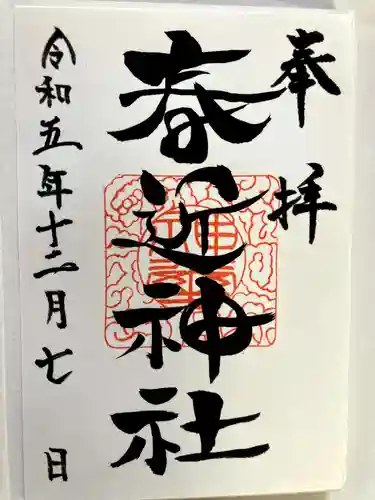 奉拝
春近神社
令和五年十二月七日